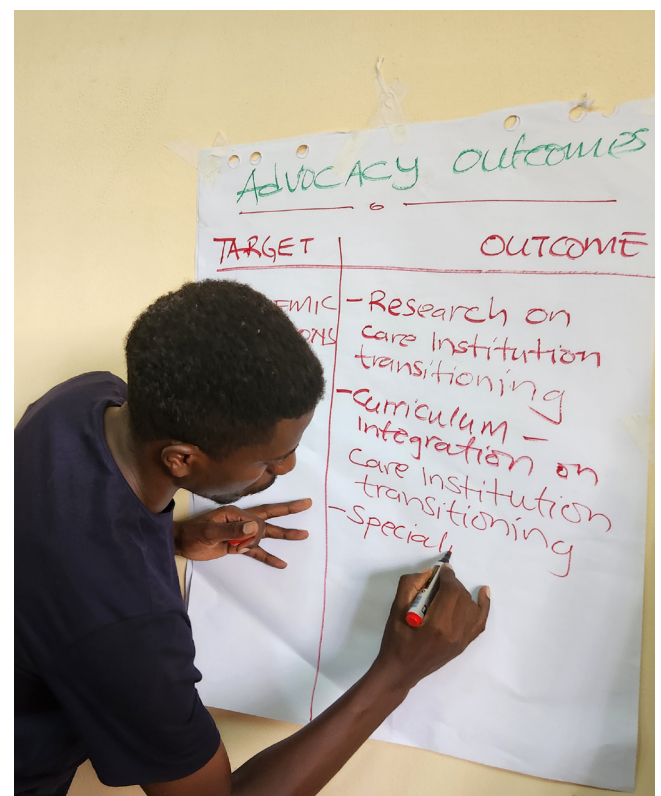 ADVOCACY Outcomes
TARGET OUTCOME
-Research on
care Institution
transitioning
-Curriculum -
Integration on
care Institution
transitioning
-Special